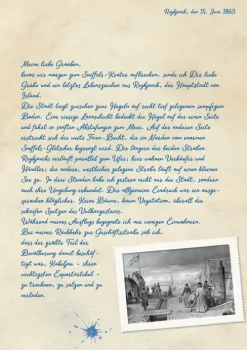 Reykjavik, den 15. Juni 1863
Meine liebe Gräuben,
bevor wir morgen zum Snäffels-Krater aufbrechen, sende ich Dir liebe
Grüße und ein letztes Lebenszeichen aus Reykjavik, der Hauptstadt von
Island.
Die Stadt liegt zwischen zwei Hügeln auf recht tief gelegenem sumpfigem
Boden. Eine riesige Lavaschicht bedeckt die Hügel auf der einen Seite
und führt in sanften Abstufungen zum Meer. Auf der anderen Seite
erstreckt sich die weite Faxa-Bucht, die im Norden vom enormen
Snäffels-Gletscher begrenzt wird. Die längere der beiden Straßen
Reykjaviks verläuft parallel zum Ufer; hier wohnen Verkäufer und
Händler; die andere, westlicher gelegene Straße läuft auf einen kleinen
See zu. In drei Stunden habe ich gestern nicht nur die Stadt, sondern
auch ihre Umgebung erkundet. Der allgemeine Eindruck war
klägliches. Keine Bäume, kaum Vegetation, überall die
scharfen Spitzen des Vulkangesteins.
Während meines Ausflugs begegnete ich nur wenigen Einwohnern.
Bei meiner Rückkehr zur Geschäftsstraße sah ich,
dass der größte Teil der
Bevölkerung damit beschäf-
tigt war, Kabeljau - ihren
wichtigsten Exportartikel -
zu trocknen, zu salzen und zu
verladen.